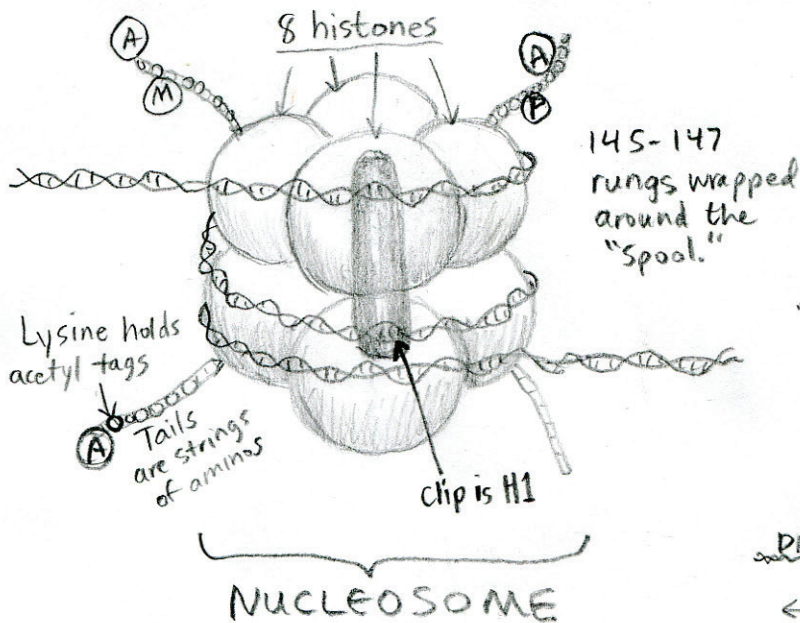 8 histones
A
M
A
P
145-147
rungs wrapped
around the
"Spool."
Lysine holds
acetyl tags
A
Tails
are strings
of aminos
clip is H1
NUCLEOSOME